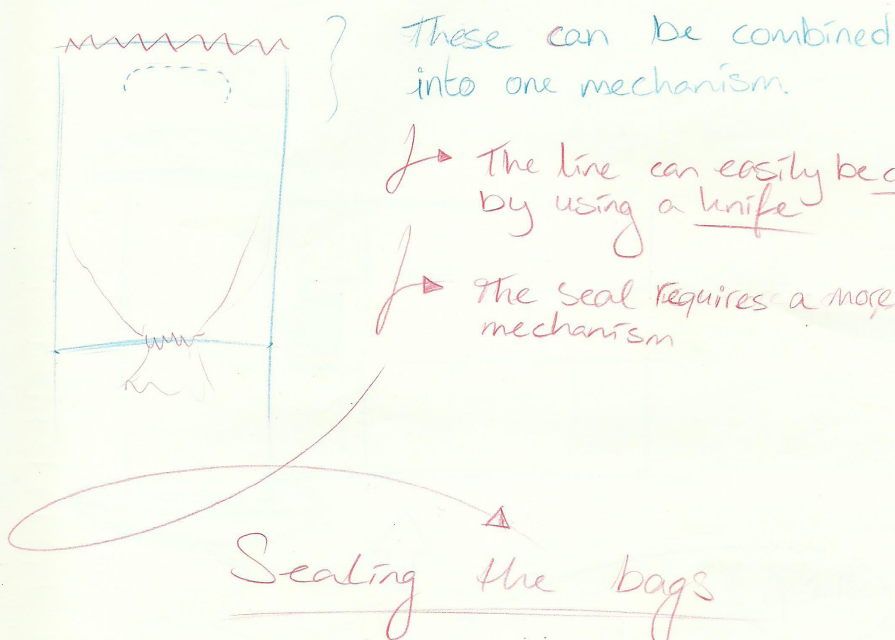 These can be combined
into one mechanism.
The line can easily be
by using a knife
The seal requires a more
mechanism
Sealing the bags